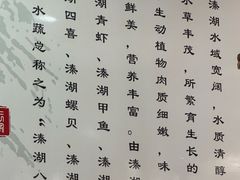 溱湖水域宽阔，水质清醇
水草丰茂，所繁育生长的
生动植物肉质细嫩，味
鲜美，营养丰富。由溱
湖青虾、溱湖甲鱼、溱
湖四喜、溱湖螺贝、溱湖
水蔬总称之为：“溱湖八